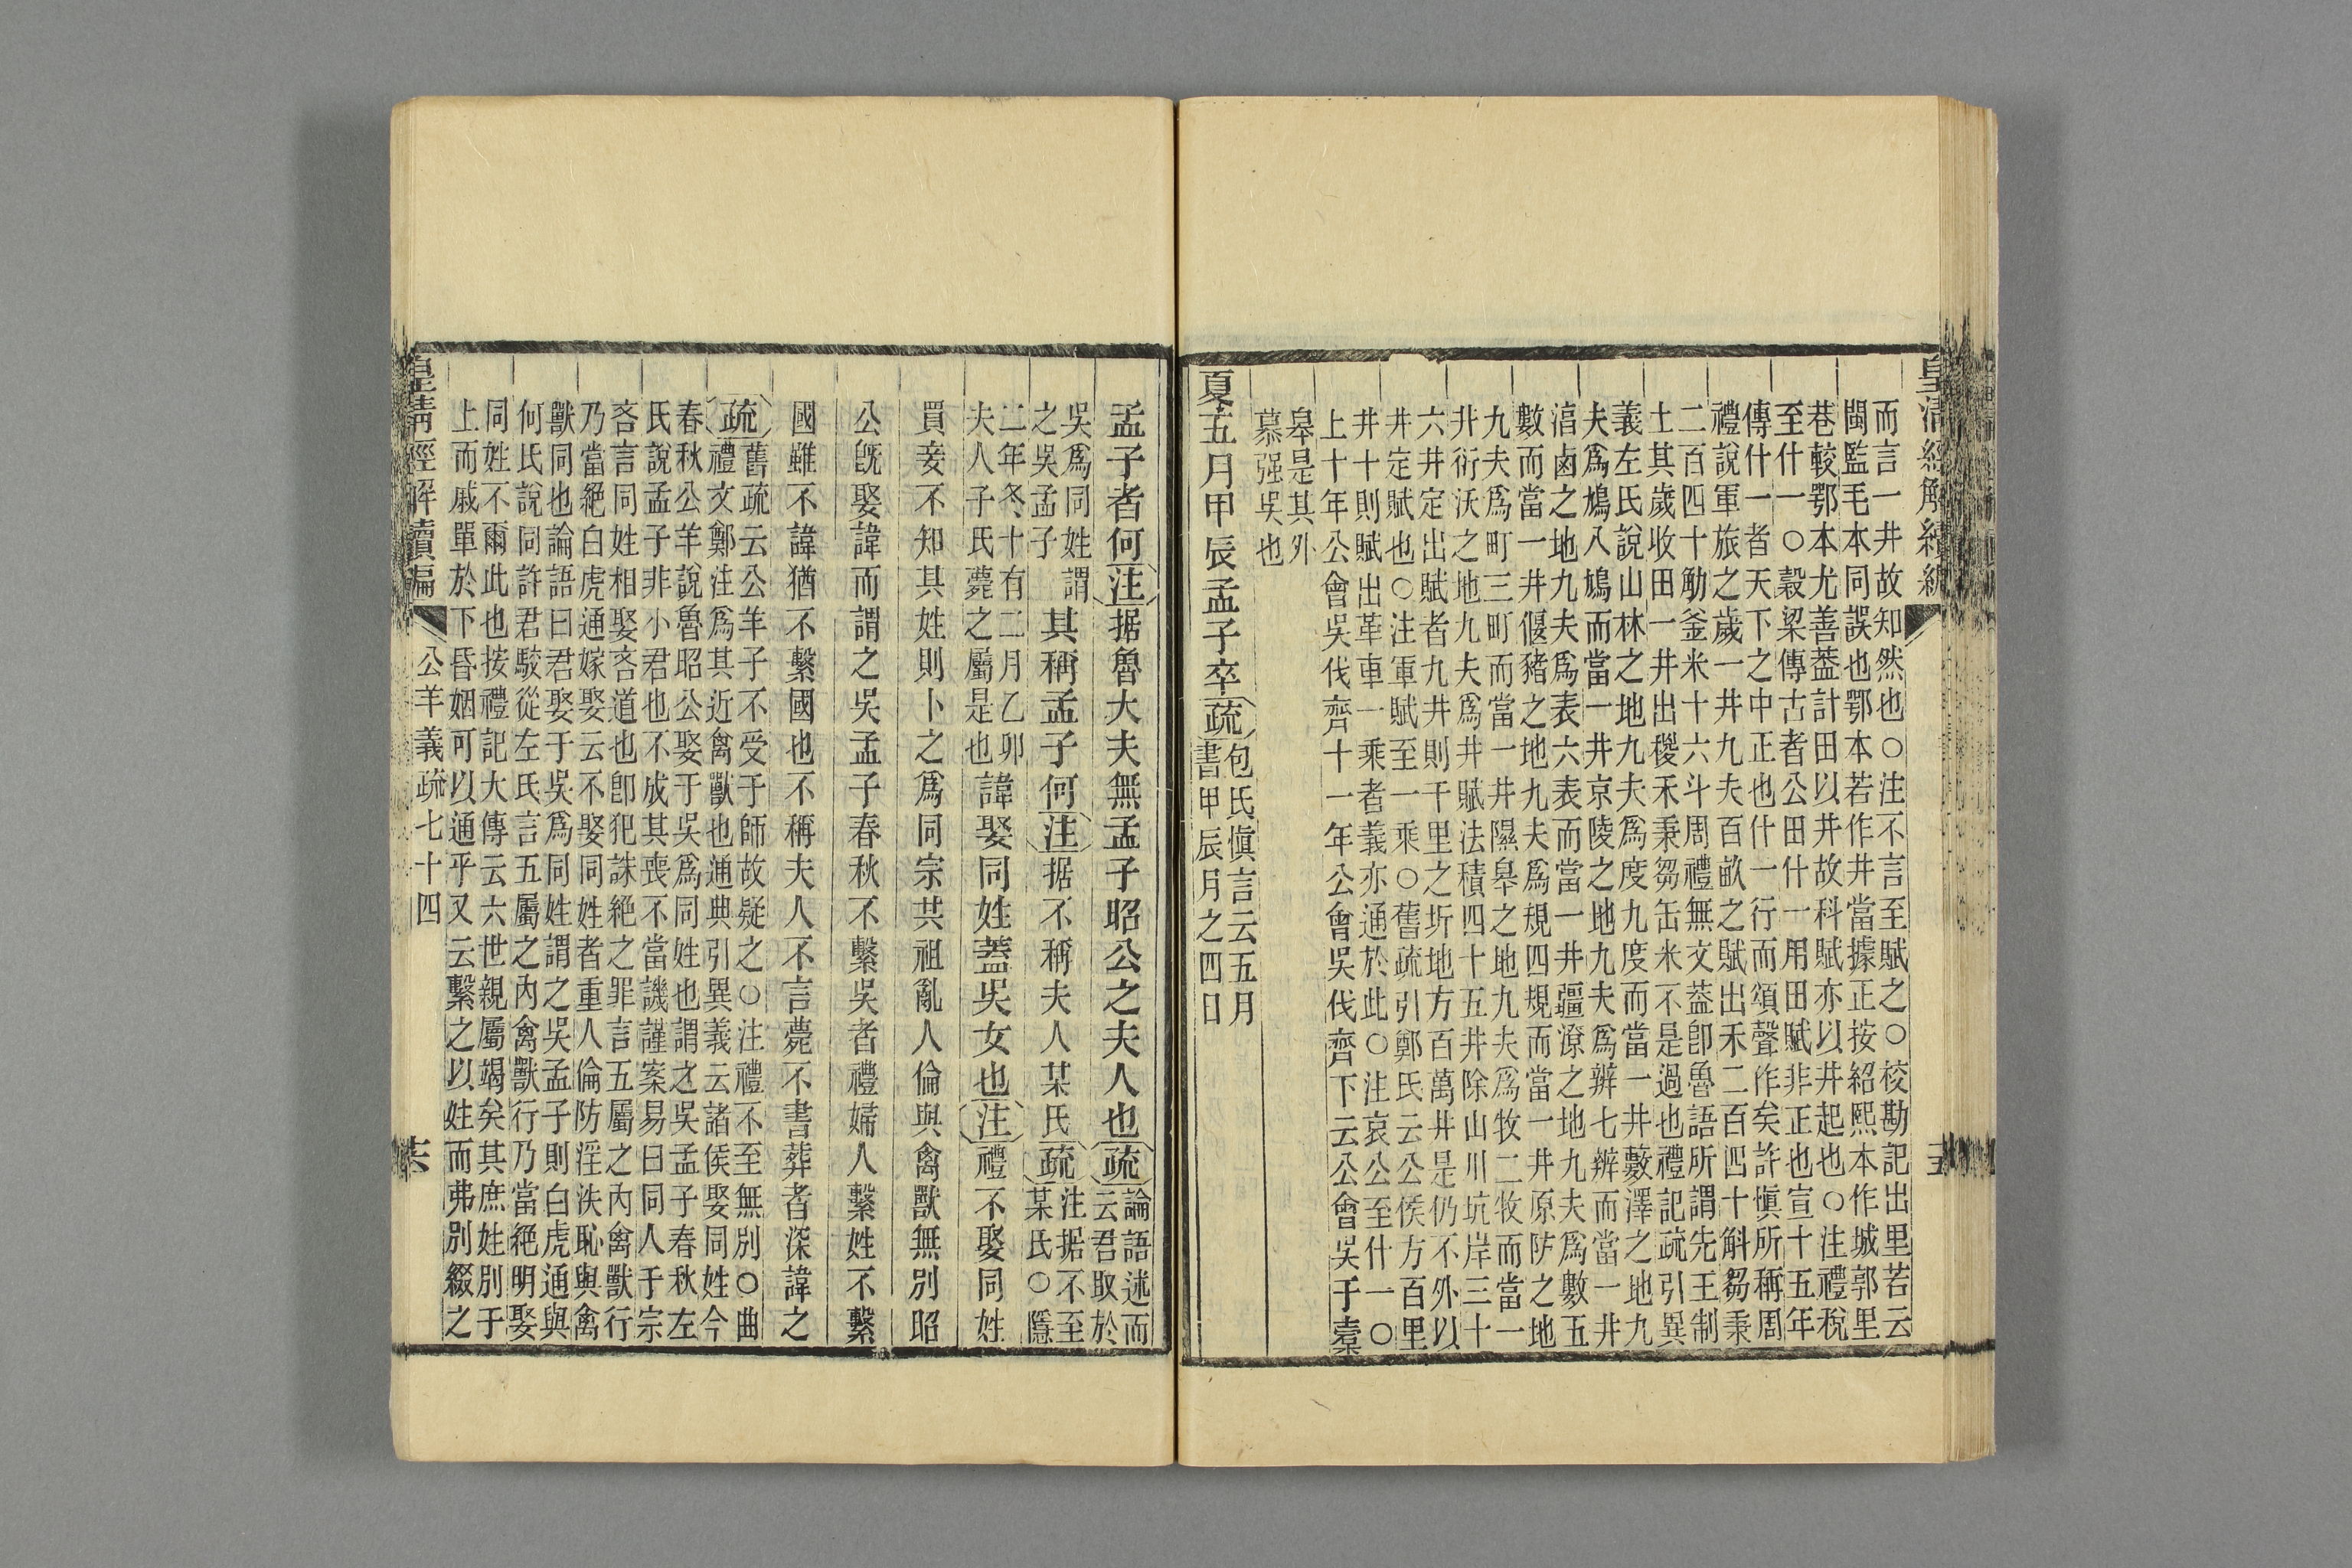 皇清經解續編
而言一井故知然也○注不言至賦之○校勘記出里若云
閩監毛本同誤也鄂本若作井當據正按紹熙本作城郭里
巷較鄂本尤善葢計田以井故科賦亦以井起也○注禮稅
至什一○穀梁傳古者公田什一用田賦非正也宣十五年
傳什一者天下之中正也什一行而頌聲作矣許愼所稱周
禮說軍旅之歲一井九夫百畝之賦出禾二百四十斛芻秉
二百四十觔釜米十六斗周禮無文葢卽魯語所謂先王制
土其歲收田一井出稯禾秉芻缶米不是過也禮記疏引異
義左氏說山林之地九夫爲度九度而當一井藪澤之地九
夫爲鳩八鳩而當一井京陵之地九夫爲辨七辨而當一井
湻鹵之地九夫爲表六表而當一井疆潦之地九夫爲數五
數而當一井偃豬之地九夫爲規四規而當一井原防之地
九夫爲町三町而當一井隰皋之地九夫爲牧二牧而當一
井衍沃之地九夫爲井賦法積四十五井除山川坑岸三十
六井定出賦者九井則千里之圻地方百萬井是仍不外以
井定賦也○注軍賦至一乘○舊疏引鄭氏云公侯方百里
井十則賦出革車一乘者義亦通於此○注哀公至什一○
上十年公會吳伐齊十一年公會吳伐齊下云公會吳于橐
皋是其外
慕强吳也
夏五月甲辰孟子卒疏包氏愼言云五月
書甲辰月之四日
孟子者何注据魯大夫無孟子昭公之夫人也疏論語述而
云君取於
吳爲同姓謂
之吳孟子其稱孟子何注据不稱夫人某氏疏注据不至
某氏○隱
二年冬十有二月乙卯
夫人子氏薨之屬是也諱娶同姓蓋吳女也注禮不娶同姓
買妾不知其姓則卜之爲同宗共祖亂人倫與禽獸無別昭
公旣娶諱而謂之吳孟子春秋不繫吳者禮婦人繫姓不繫
國雖不諱猶不繫國也不稱夫人不言薨不書葬者深諱之
疏舊疏云公羊子不受于師故疑之○注禮不至無別○曲
禮文鄭注爲其近禽獸也通典引異義云諸侯娶同姓今
春秋公羊說魯昭公娶于吳爲同姓也謂之吳孟子春秋左
氏說孟子非小君也不成其喪不當譏謹案易曰同人于宗
吝言同姓相娶吝道也卽犯誅絕之罪言五屬之內禽獸行
乃當絕白虎通嫁娶云不娶同姓者重人倫防淫泆恥與禽
獸同也論語曰君娶于吳爲同姓謂之吳孟子則白虎通與
何氏說同許君駮從左氏言五屬之內禽獸行乃當絕明娶
同姓不爾此也按禮記大傳云六世親屬竭矣其庶姓別于
上而戚單於下昏姻可以通乎又云繫之以姓而弗別綴之
皇清經解續編
公羊義疏七十四